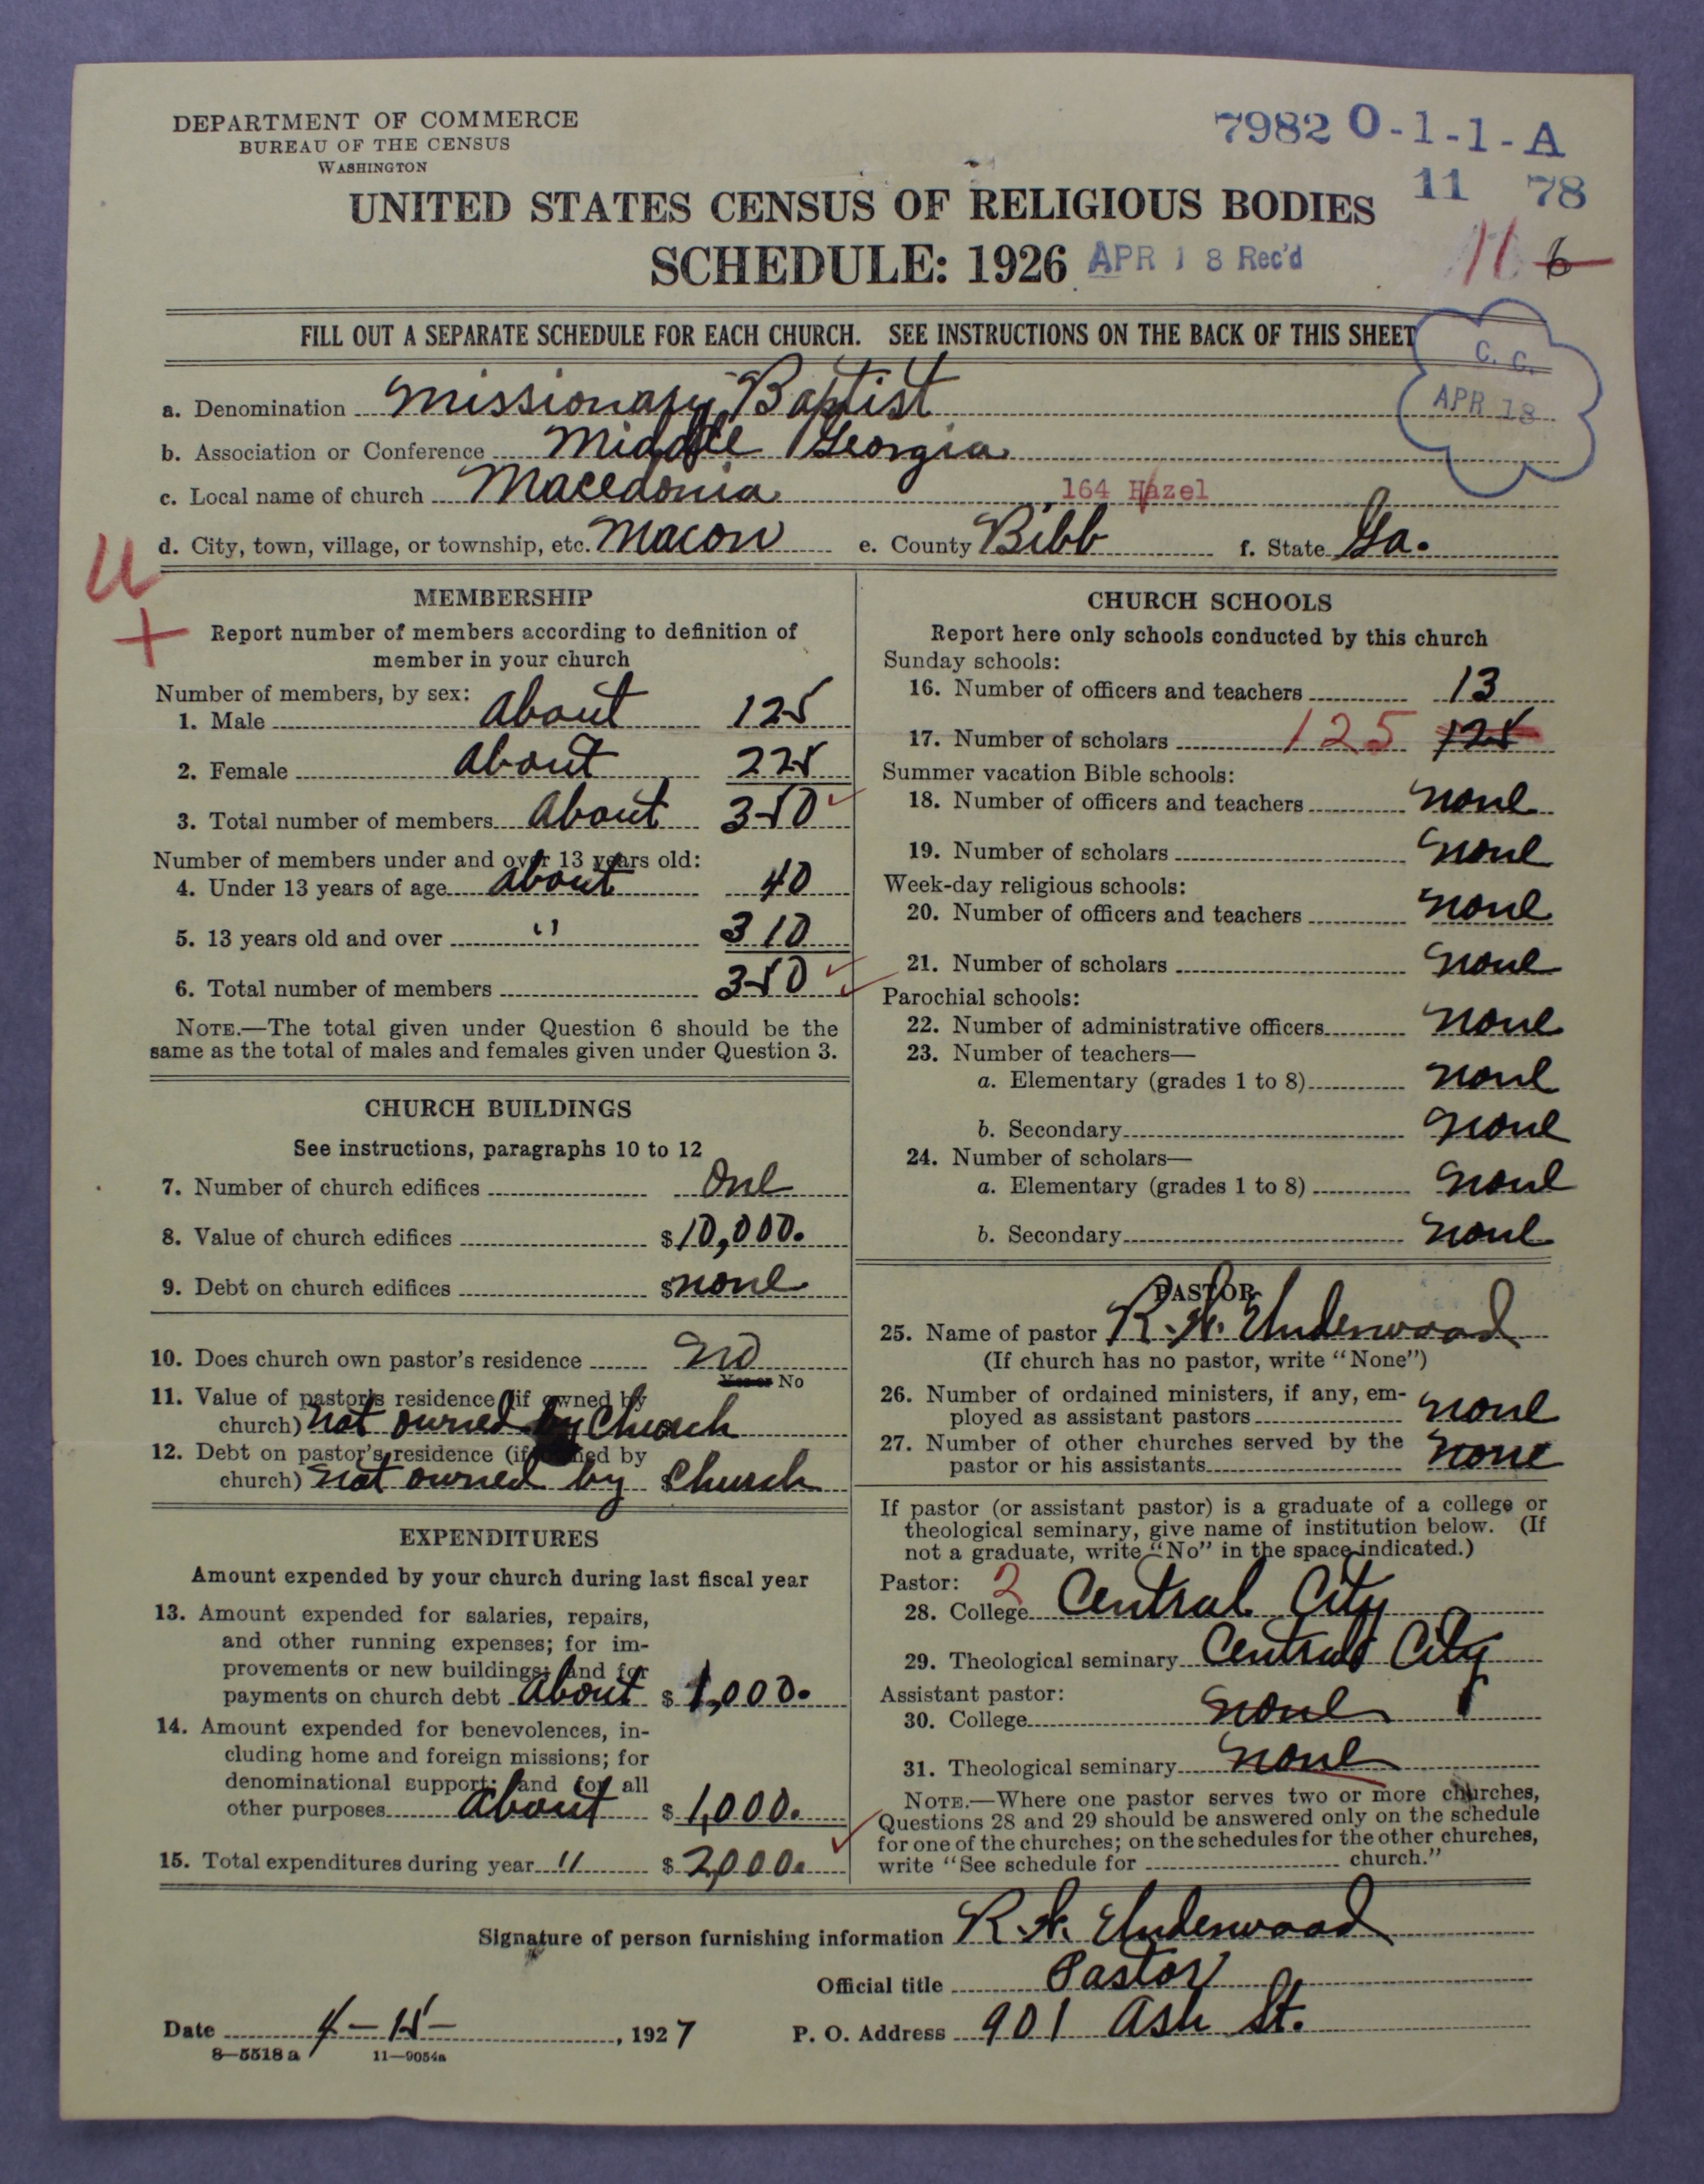 DEPARTMENT OF COMMERCE
BUREAU OF THE CENSUS
WASHINGTON
7982 0-1-1-A
11 78
UNITED STATES CENSUS OF RELIGIOUS BODIES
SCHEDULE: 1926 APR 18 Rec'd
11 6
FILL OUT A SEPARATE SCHEDULE FOR EACH CHURCH. SEE INSTRUCTIONS ON THE BACK OF THIS SHEET
C. C.
APR 18
a. Denomination Missionary Baptist
b. Association or Conference Middle Georgia
c. Local name of church Macedonia 164 Hazel
d. City, town, village, or township, etc. Macon e. County Bibb f. State Ga.
U
+
MEMBERSHIP
Report number of members according to definition of
member in your church
Number of members, by sex:
1. Male about 125
2. Female about 225
3. Total number of members about 350
Number of members under and over 13 years old:
4. Under 13 years of age about 40
5. 13 years old and over " 310
6. Total number of members 350
NOTE.—The total given under Question 6 should be the
same as the total of males and females given under Question 3.
CHURCH BUILDINGS
See instructions, paragraphs 10 to 12
7. Number of church edifices One
8. Value of church edifices $10,000.
9. Debt on church edifices $none
10. Does church own pastor's residence No
Yes or No
11. Value of pastor's residence (if owned by
church) not owned by Church
12. Debt on pastor's residence (if owned by
church) not owned by Church
EXPENDITURES
Amount expended by your church during last fiscal year
13. Amount expended for salaries, repairs,
and other running expenses; for im-
provements or new buildings; and for
payments on church debt about $ 1,000.
14. Amount expended for benevolences, in-
cluding home and foreign missions; for
denominational support; and for all
other purposes about $ 1,000.
15. Total expenditures during year " $ 2,000.
CHURCH SCHOOLS
Report here only schools conducted by this church
Sunday schools:
16. Number of officers and teachers 13
17. Number of scholars 125 125
Summer vacation Bible schools:
18. Number of officers and teachers none
19. Number of scholars none
Week-day religious schools:
20. Number of officers and teachers none
21. Number of scholars none
Parochial schools:
22. Number of administrative officers none
23. Number of teachers—
a. Elementary (grades 1 to 8) none
b. Secondary none
24. Number of scholars—
a. Elementary (grades 1 to 8) none
b. Secondary none
PASTOR
25. Name of pastor Underwood
(If church has no pastor, write "None")
26. Number of ordained ministers, if any, em-
ployed as assistant pastors none
27. Number of other churches served by the
pastor or his assistants none
If pastor (or assistant pastor) is a graduate of a college or
theological seminary, give name of institution below. (If
not a graduate, write "No" in the space indicated.)
Pastor: 2
28. College Central City
29. Theological seminary Central City
Assistant pastor:
30. College none
31. Theological seminary none
NOTE.—Where one pastor serves two or more churches,
Questions 28 and 29 should be answered only on the schedule
for one of the churches; on the schedules for the other churches,
write "See schedule for church."
Signature of person furnishing information Underwood
Official title Pastor
Date 4-15- , 1927 P. O. Address 901 Ash St.
8-5518 a 11-9054a